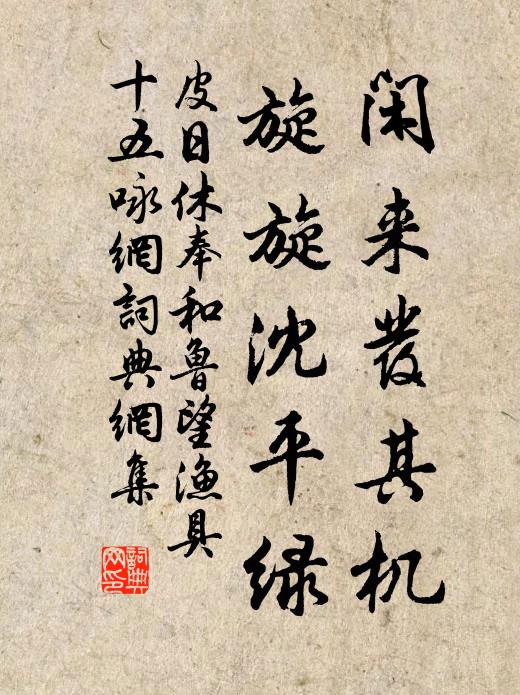 闲来發其机
旋旋沈平绿
皮日休奉和鲁望渔具
十五咏網詞典網集
詞典
网印